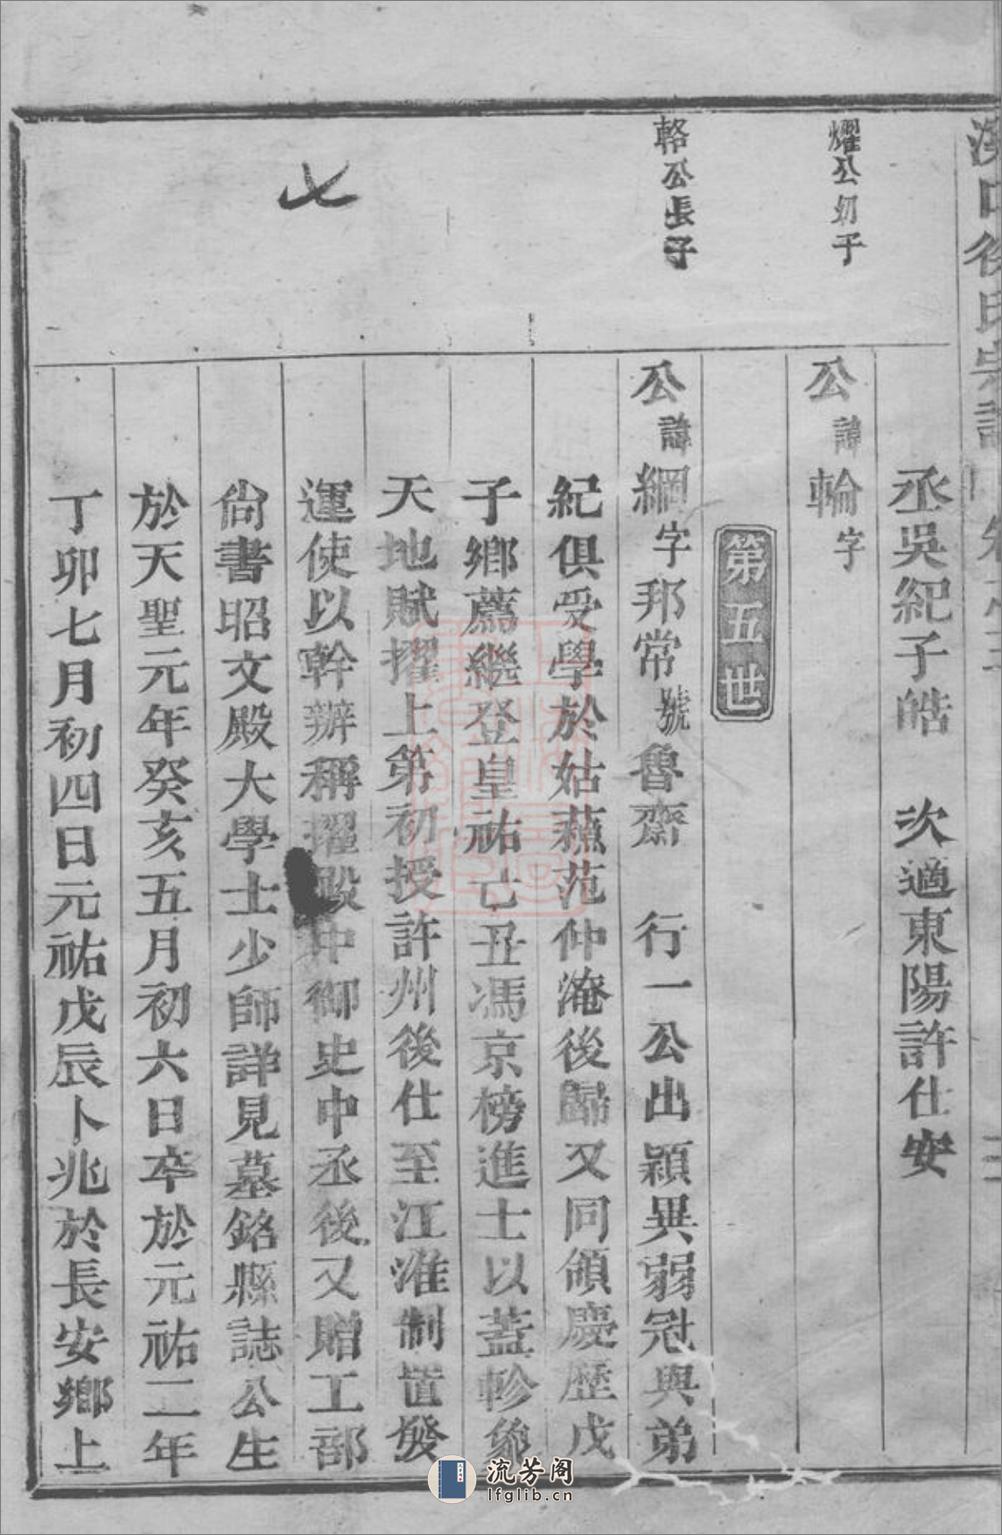 丞吳紀子皓　次適東陽許仕安
燿公初子
公諱輪字
第五世
輅公長子
公諱綱字邦常號魯齋　行一公出穎異弱冠與弟
紀俱受學於姑蘓范仲淹後歸又同領慶歷戊
子鄉薦繼登皇祐己丑馮京榜進士以蓋軫象
天地賦擢上第初授許州後仕至江淮制置發
運使以幹辦稱擢殿中御史中丞後又贈工部
尚書昭文殿大學士少師詳見墓銘縣誌公生
於天聖元年癸亥五月初六日卒於元祐二年
丁卯七月初四日元祐戊辰卜兆於長安鄉上
七
流芳阁
lfglib.cn